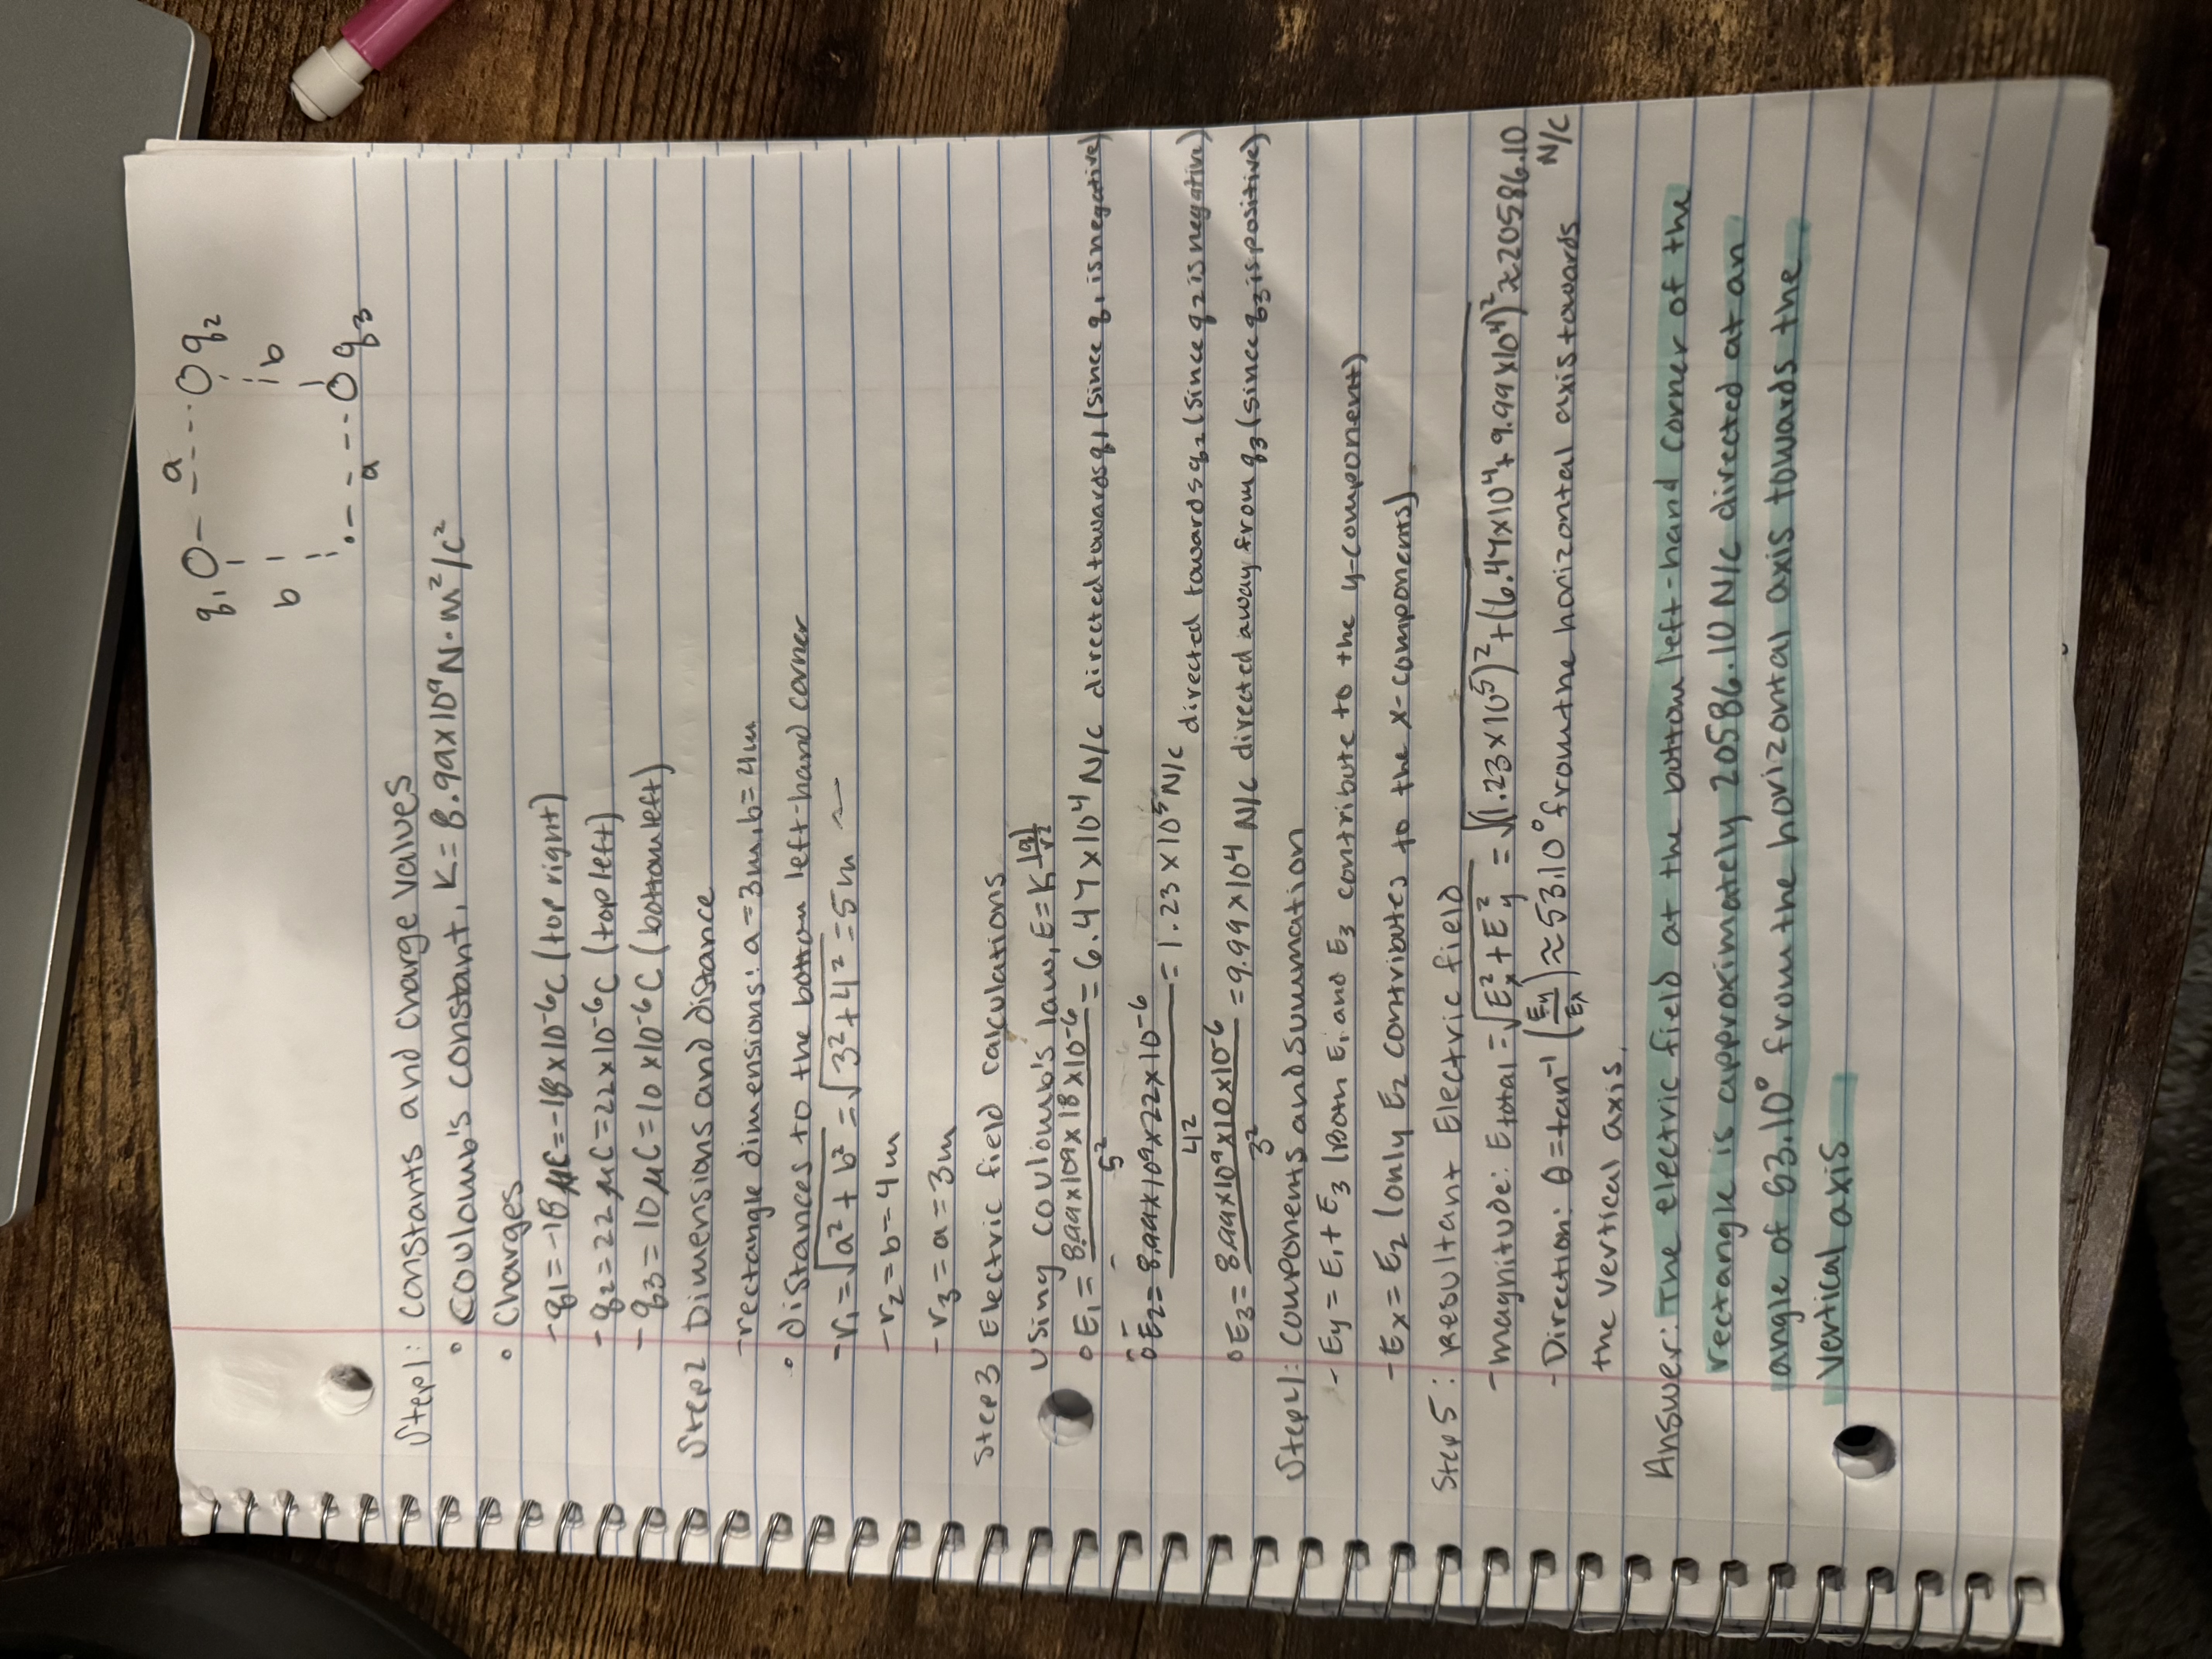 q1 O - - a - - - O q2
b b
. - - - - O q3
a
Step 1: constants and charge values
• Coulomb's constant, K = 8.99x10⁹ N·m²/c²
• Charges
- q1 = -18 μC = -18 x10⁻⁶C (top right)
- q2 = 22 μC = 22x10⁻⁶C (top left)
- q3 = 10 μC = 10 x10⁻⁶C (bottom left)
Step 2 Dimensions and distance
- rectangle dimensions: a = 3m, b = 4m
• distances to the bottom left-hand corner
- r1 = √a² + b² = √3² + 4² = 5m
- r2 = b = 4m
- r3 = a = 3m
Step 3 Electric field calculations
Using Coulomb's law, E = K |q|/r²
o E1 = 8.99x10⁹x18x10⁻⁶/5² = 6.47 x10⁴ N/c directed towards q1 (since q1 is negative)
o E2 = 8.99x10⁹x22x10⁻⁶/4² = 1.23 x10⁵ N/c directed towards q2 (since q2 is negative)
o E3 = 8.99x10⁹x10x10⁻⁶/3² = 9.99x10⁴ N/c directed away from q3 (since q3 is positive)
Step 4: components and summation
- Ey = E1 + E3 (Both E1 and E3 contribute to the y-component)
- Ex = E2 (only E2 contributes to the x-components)
Step 5: resultant Electric field
- magnitude: E total = √Ex² + Ey² = √(1.23x10⁵)² + (6.47x10⁴ + 9.99x10⁴)² ≈ 20586.10 N/c
- Direction: θ = tan⁻¹ (Ey/Ex) ≈ 53.10° from the horizontal axis towards
the vertical axis.
Answer: The electric field at the bottom left-hand corner of the
rectangle is approximately 20586.10 N/c directed at an
angle of 53.10° from the horizontal axis towards the
vertical axis